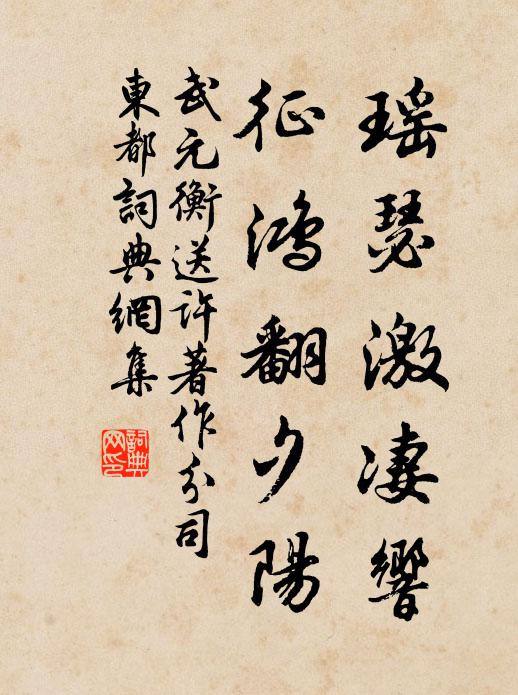 瑶瑟激凄響
征鴻翻夕陽
武元衡送許著作分司
東都詞典網集
詞典網印